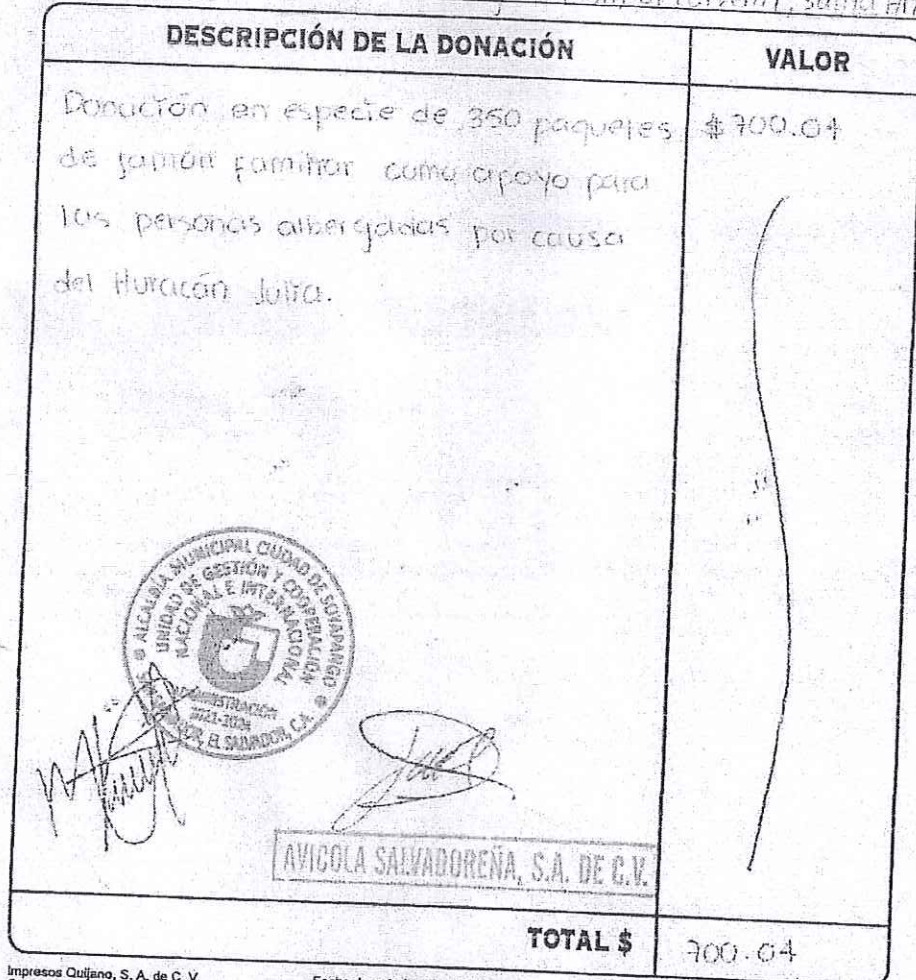 Santa An
DESCRIPCIÓN DE LA DONACIÓN
VALOR
Donación en especie de 350 paquetes $700.04
de jamón familiar como apoyo para
las personas albergadas por causa
del Huracán Julia.
ALCALDÍA MUNICIPAL CIUDAD DE SOYAPANGO
UNIDAD DE GESTIÓN Y COOPERACIÓN
NACIONAL E INTERNACIONAL
ADMINISTRACIÓN
2021-2024
EL SALVADOR, C.A.
AVICOLA SALVADOREÑA, S.A. DE C.V.
TOTAL $ 700.04
Impresos Quijano, S. A. de C. V.